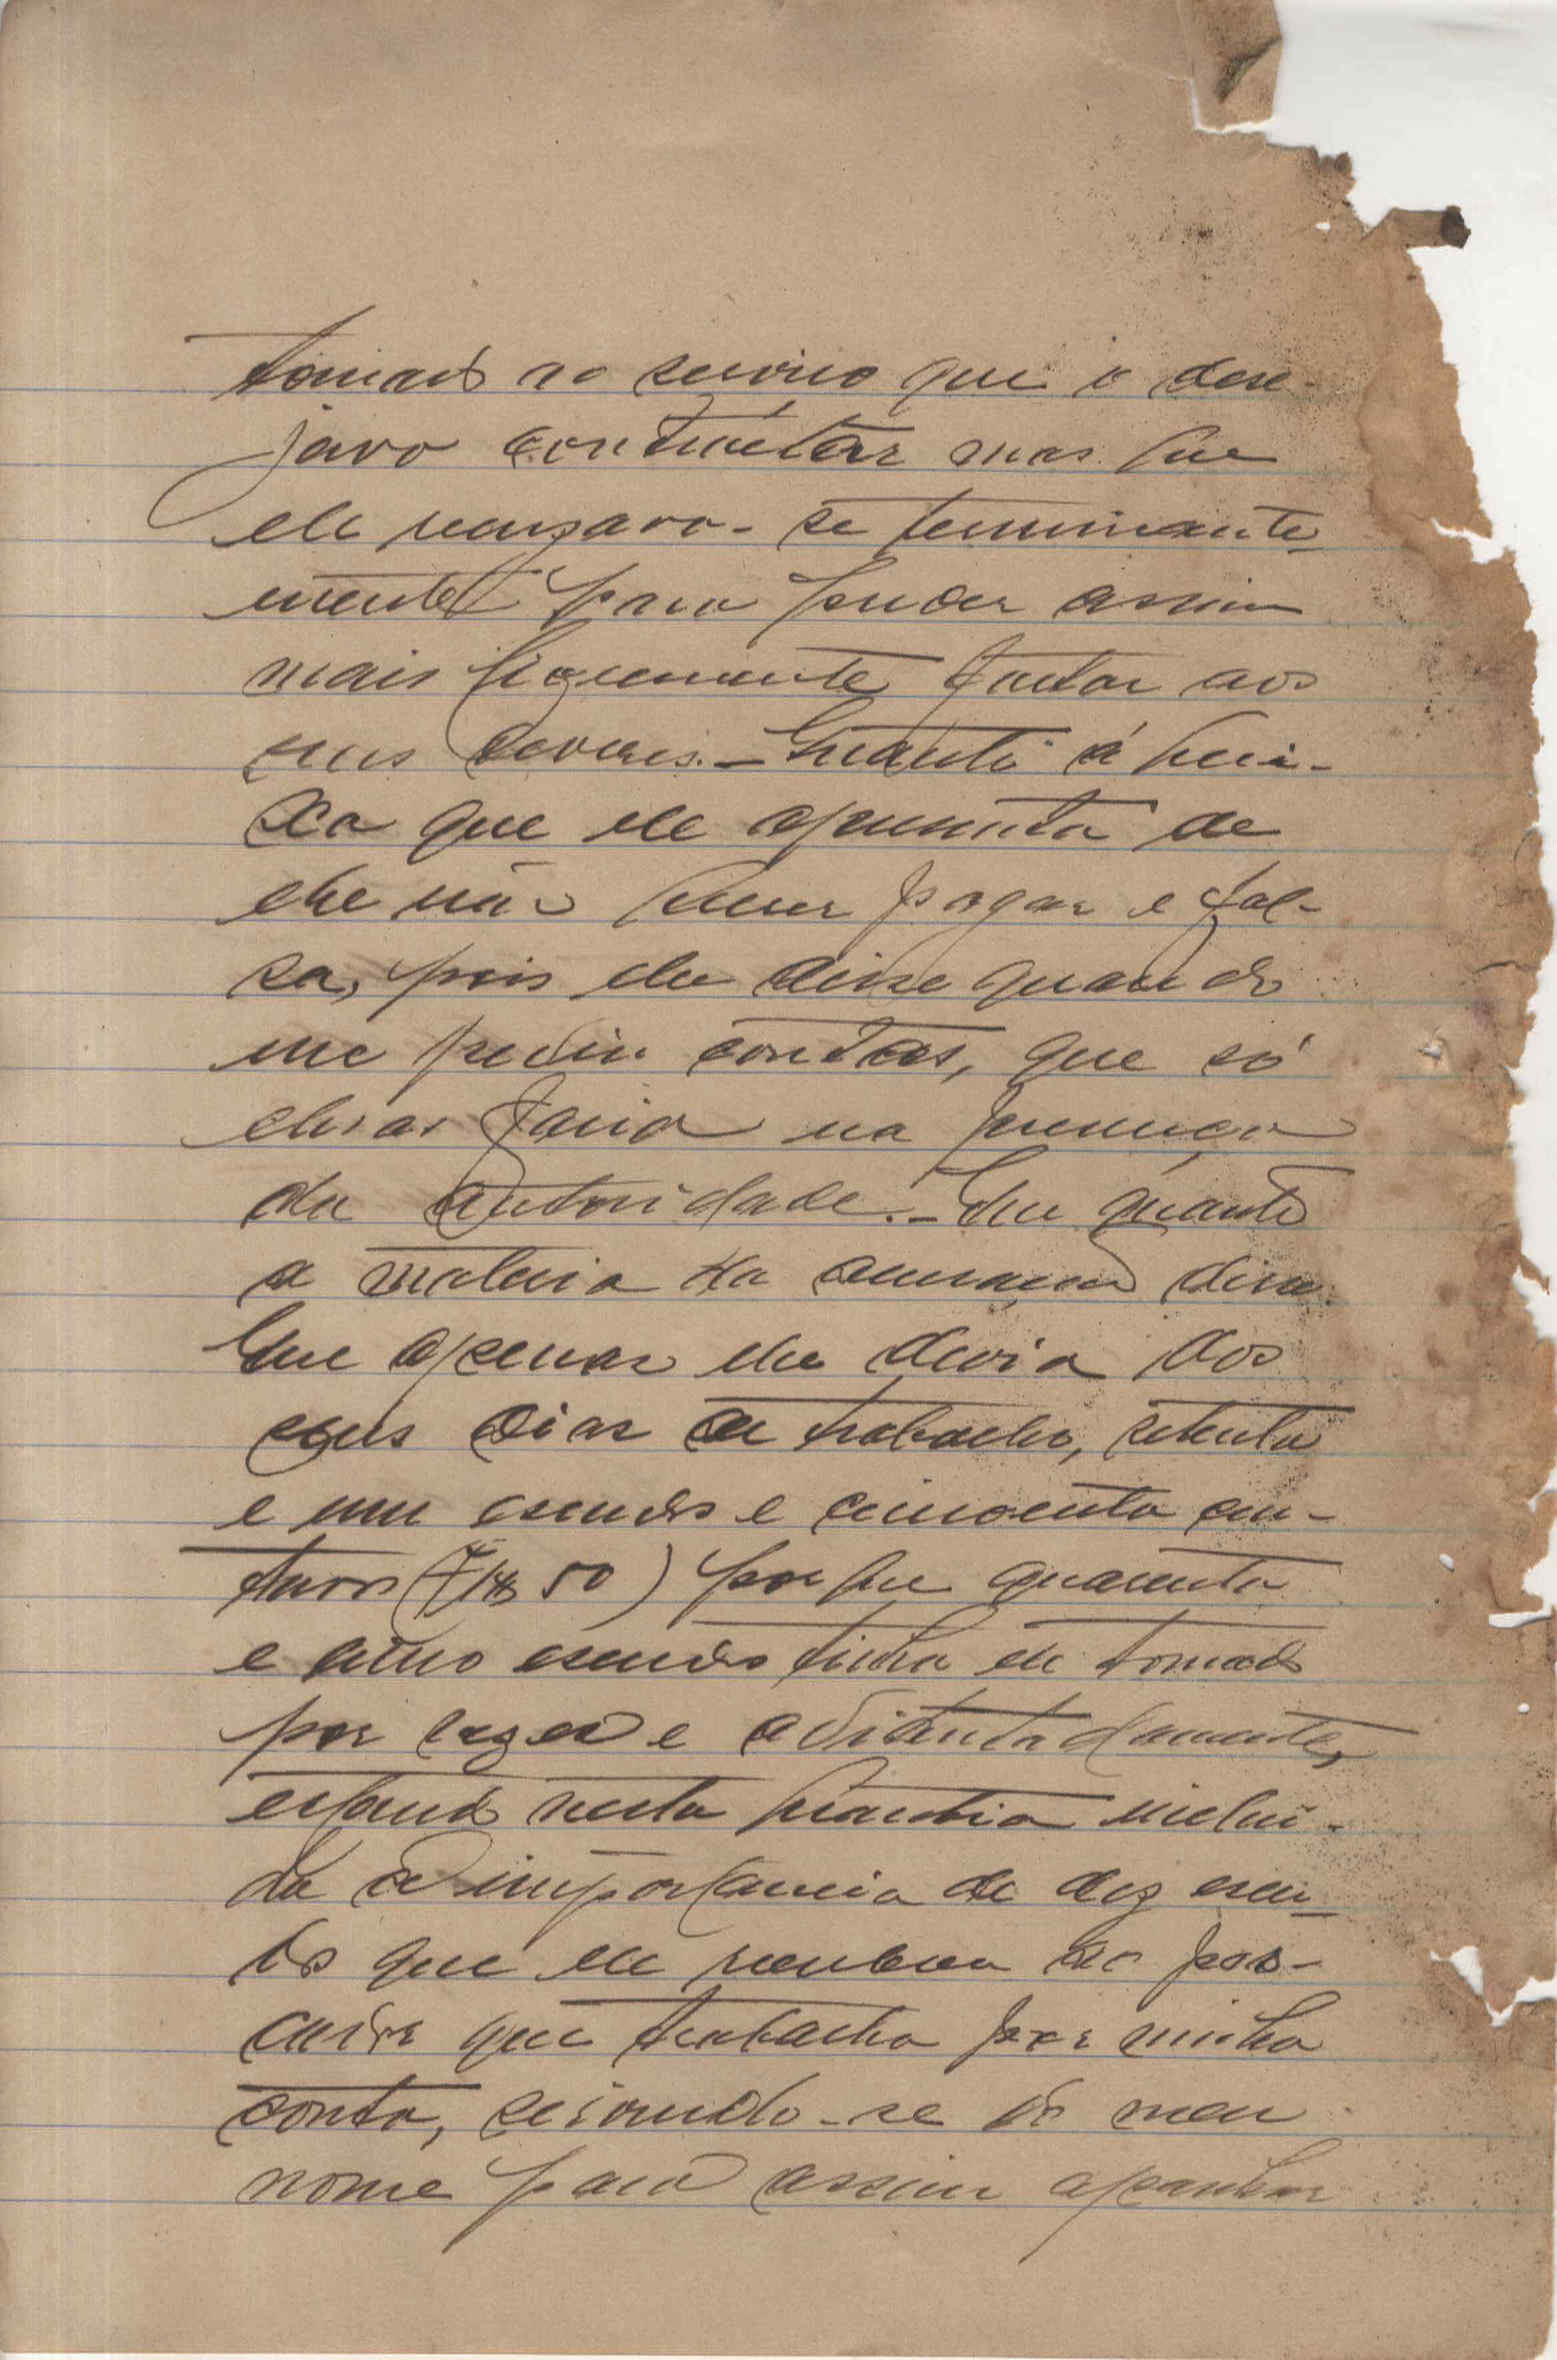 tomado ao serviço que o dese-
java contractar mas que
ele recusava-se terminante-
mente para puder assim
mais ligeiramente faltar aos
seus deveres.- Quanto á quei-
xa que ele apresenta de
lhe não querer pagar e fal-
sa, pois lhe disse quando
me pediu contas, que só
lhas faria na presença
da autoridade.- Que quanto
a materia da acusação disse
que apenas lhe devia dos
seus dias de trabalho, setenta
e um escudos e cincoenta cen-
tavos (71$50) por que quarenta
e cinco escudos tinha ele tomado
por e adiantadamente,
estando nesta quantia inclui-
da a importancia de dez escu-
dos que ele recebeu do pes-
cador que trabalha por minha
conta, servindo-se do meu
nome para assim apanhar